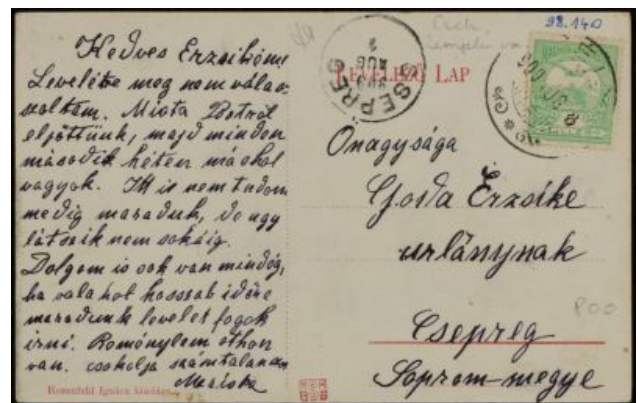 Kedves Erzsikém!
Levelére még nem vála-
szoltam. Mióta
eljöttünk, majd minden
második héten máshol
vagyok. Itt is nem tudom
meddig maradunk, de ugy
látszik nem sokáig.
Dolgom is sok van mindég,
ha vala hol hosszab időre
maradunk levelet fogok
irni. Reménylem othon
van. csokolja számtalanszor
Mariska
Rosenfeld Ignácz kiadása
98.140
LEVELEZŐ LAP
CSEPREG
AUG
Önagysága
Goda Erzsike
urlánynak
Csepreg
Soprom-megye
800